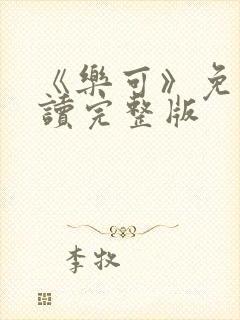 《樂可》免
讀完整版
李牧